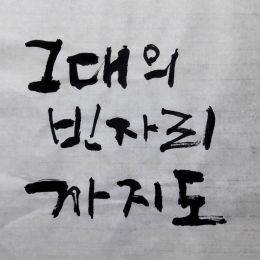 그대의
빈자리
까지도